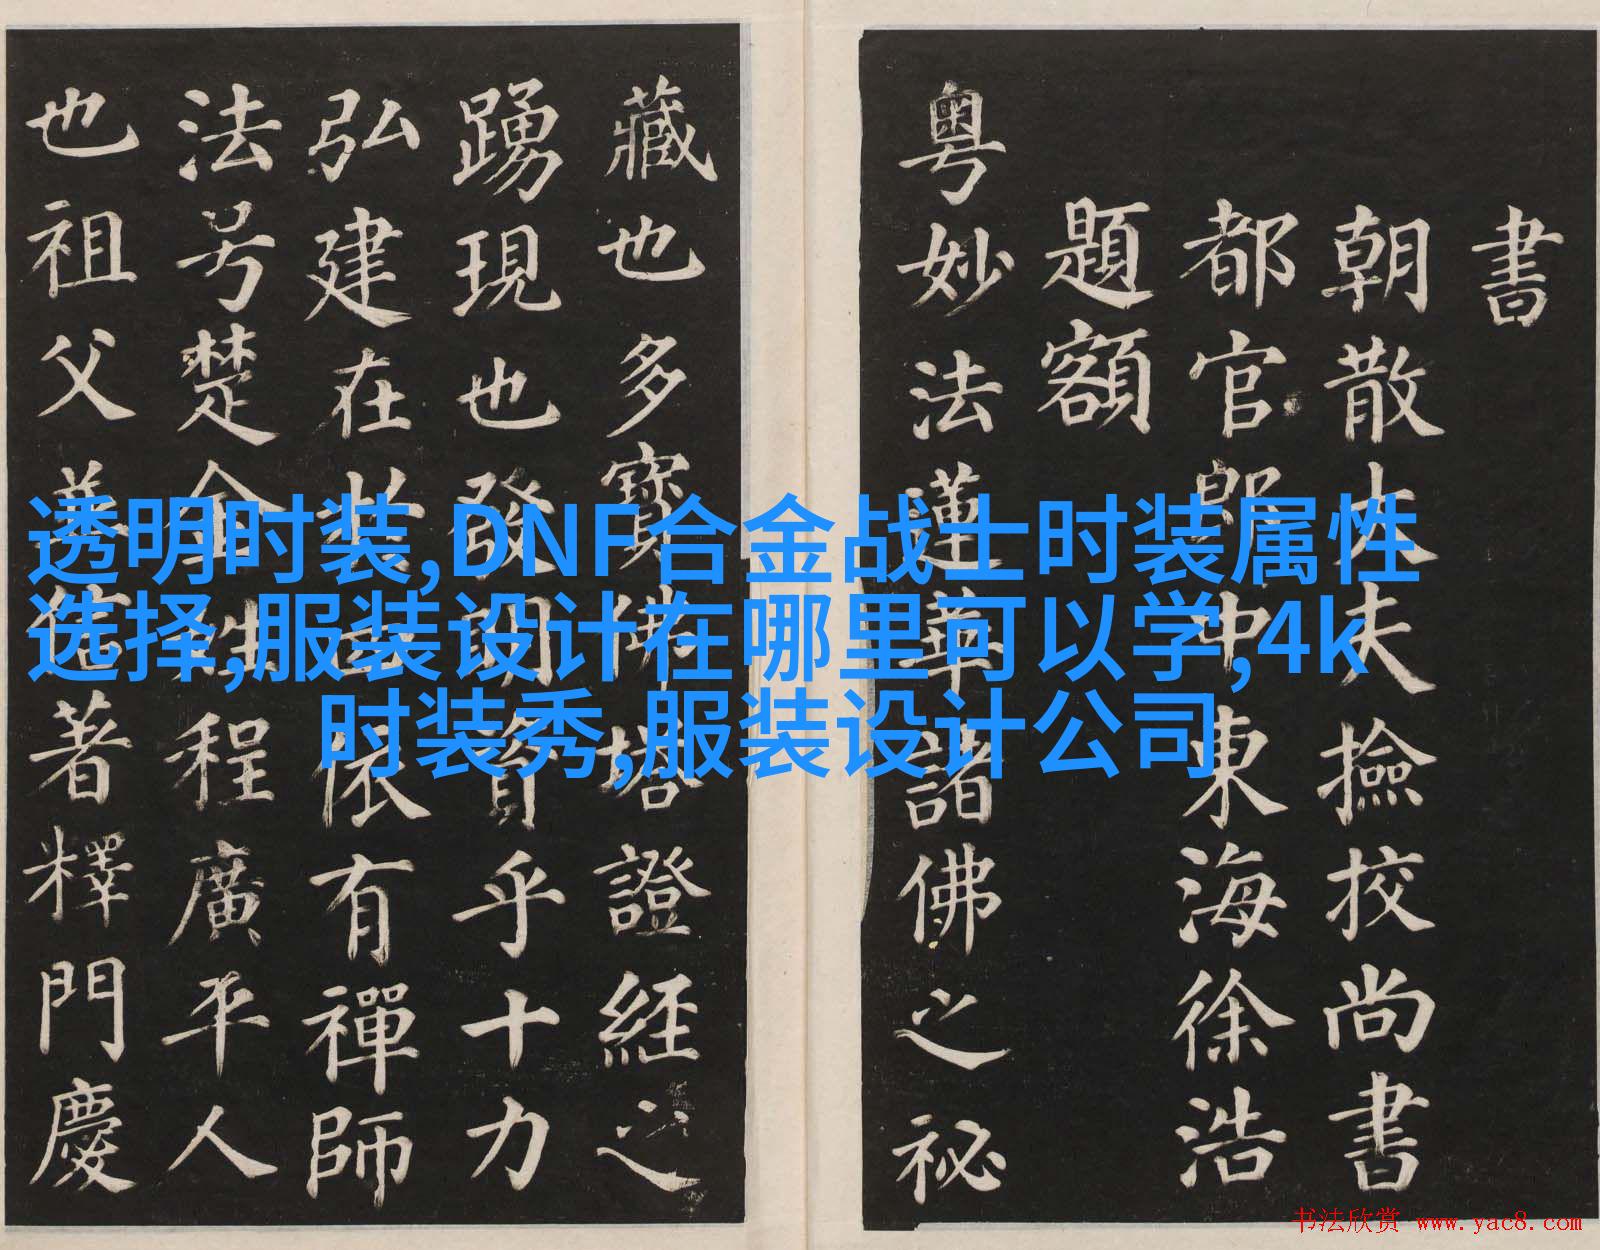 書
朝散大夫撿校尚書
都官郎中東海徐浩
題額
粤妙法蓮華諸佛之秘
藏也多寶佛塔證經之
踴現也發明資乎十力
弘建在於四依有禪師
法号楚金姓程廣平人
也祖父並信著釋門慶
透明时装,DNF合金战士时装属性
选择,服装设计在哪里可以学,4k
时装秀,服装设计公司
书法欣赏 www.yac8.com